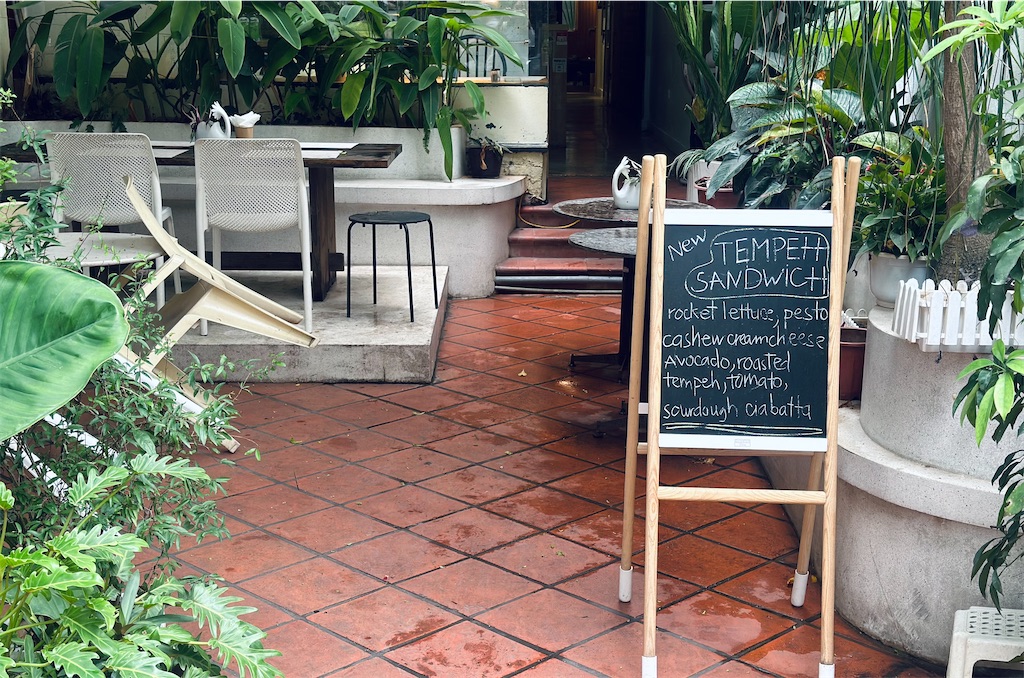 New TEMPEH
SANDWICH
rocket lettuce, pesto
cashew creamcheese
Avocado, roasted
tempeh, tomato,
sourdough ciabatta